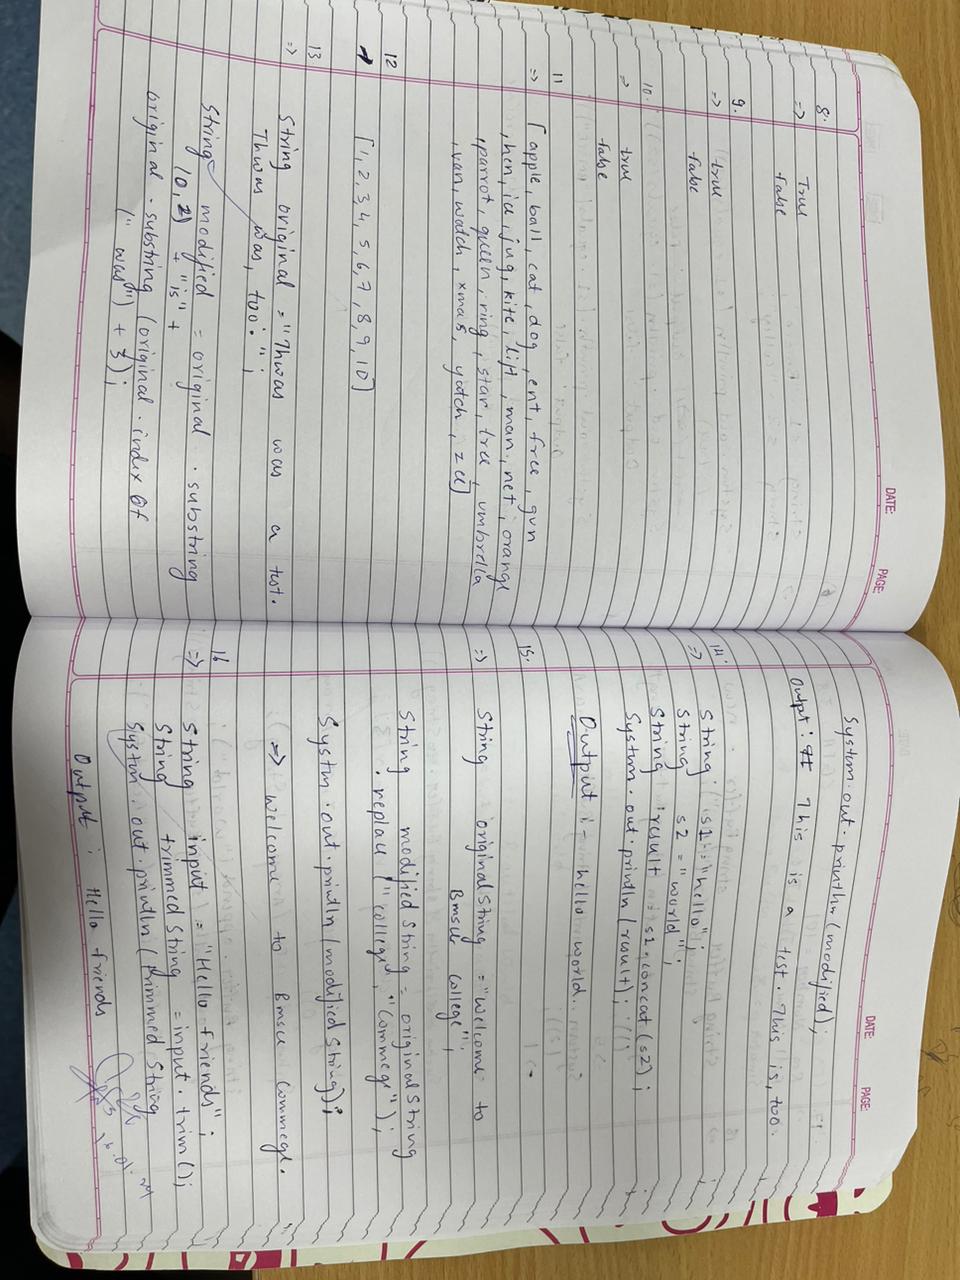 DATE:
PAGE:
8.
=> True
false
9.
=> true
false
10.
=> true
false
11
=> [apple, ball, cat, dog, ent, free, gun
, hen, ice, jug, kite, lift, man, net, orange
, parrot, queen, ring, star, tree, umbrella
, van, watch, xmas, yatch, zee]
12
[1, 2, 3, 4, 5, 6, 7, 8, 9, 10]
13
=>
String original = "Thwas was a test.
Thwas was, too.";
String modified = original . substring
(0, 2) + "is" +
original . substring (original . index Of
("was") + 3);
DATE:
PAGE:
System.out.println (modified);
Output : This is a test. This is, too.
14.
=> String s1 = "hello";
String s2 = "world";
String result = s1.concat (s2);
System.out.println (result);
Output :- hello world.
15.
=> String original String = "Welcome to
Bmsce college";
String modified String = original String
. replace ("college", "Commege");
System.out.println (modified String);
=> Welcome to Bmsce Commege.
16
=> String input = "Hello friends";
String trimmed String = input . trim ();
System . out . println (trimmed String
Output : Hello friends